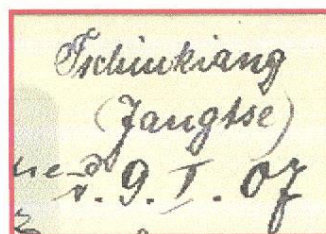 Tschinkiang
(Jangtse)
d. 9. I. 07